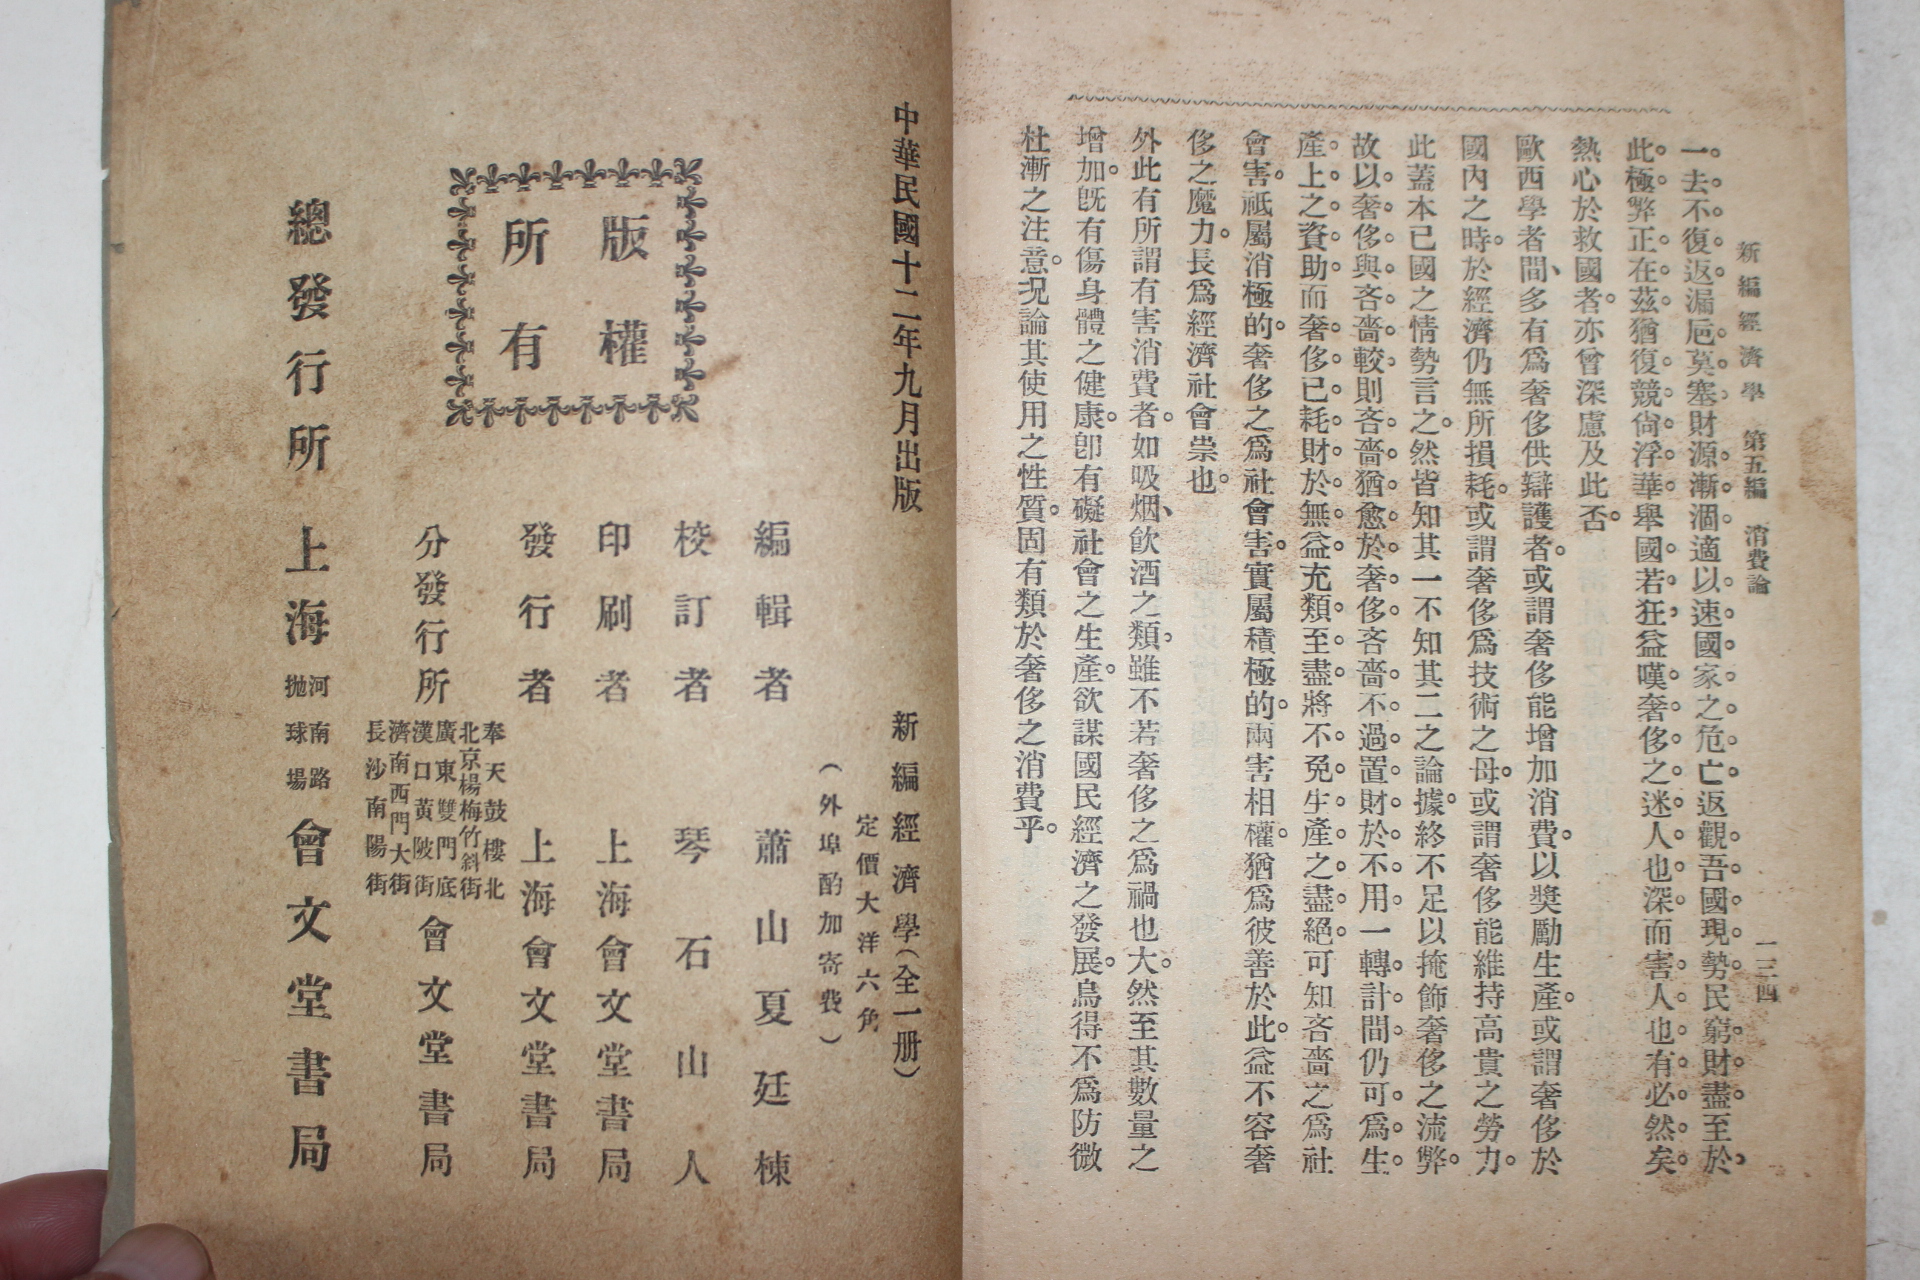 新編經濟學　第五編　消費論　一三四
一去不復返漏巵莫塞財源漸涸適以速國家之危亡返觀吾國現勢民窮財盡至於
此極弊正在茲猶復競尙浮華舉國若狂益嘆奢侈之迷人也深而害人也有必然矣
熱心於救國者亦曾深慮及此否
歐西學者間多有爲奢侈供辯護者或謂奢侈能增加消費以獎勵生產或謂奢侈於
國內之時於經濟仍無所損耗或謂奢侈爲技術之母或謂奢侈能維持高貴之勞力
此蓋本已國之情勢言之然皆知其一不知其二之論據終不足以掩飾奢侈之流弊
故以奢侈與吝嗇較則吝嗇猶愈於奢侈吝嗇不過置財於不用一轉計間仍可爲生
產上之資助而奢侈已耗財於無益充類至盡將不免生產之盡絕可知吝嗇之爲社
會害祗屬消極的奢侈之爲社會害實屬積極的兩害相權猶爲彼善於此益不容奢
侈之魔力長爲經濟社會祟也
外此有所謂有害消費者如吸烟、飮酒之類雖不若奢侈之爲禍也大然至其數量之
增加旣有傷身體之健康卽有礙社會之生產欲謀國民經濟之發展烏得不爲防微
杜漸之注意況論其使用之性質固有類於奢侈之消費乎
中華民國十二年九月出版
新編經濟學（全一册）
定價大洋六角
（外埠酌加寄費）
版權
所有
編輯者　蕭山夏廷棟
校訂者　琴石山人
印刷者　上海會文堂書局
發行者　上海會文堂書局
分發行所
奉天鼓樓北
北京楊梅竹斜街
廣東雙門底
漢口黃陂街
濟南西門大街
長沙南陽街
會文堂書局
總發行所　上海
河南路
拋球場
會文堂書局